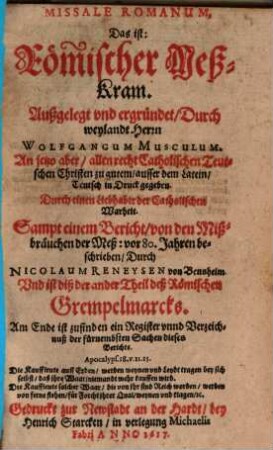 MISSALE ROMANUM,
Das ist:
Römischer Meß-
Kram.
Außgelegt vnd ergründet/Durch
weylandt Herrn
WOLFGANGUM MUSCULUM.
An jetzo aber/allen recht Catholischen Teut-
schen Christen zu gutem/ausser dem Latein/
Teutsch in Druck gegeben.
Durch einen Liebhaber der Catholischen
Warheit.
Sampt einem Bericht/von den Miß-
bräuchen der Meß: vor 80. Jahren be-
schrieben/Durch
NICOLAUM RENEYSEN von Bensheim.
Vnd ist diß der ander Theil deß Römischen
Grempelmarcks.
Am Ende ist zufinden ein Register vnnd Verzeich-
nuß der fürnembsten Sachen dieses
Berichts.
Apocalyp. 18. v. 11. 15.
Die Kauffleute auff Erden/werden weynen vnd Leydt tragen bey sich
selbst/daß ihre Waar niemandt mehr kauffen wird.
Die Kauffleute solcher Waar/die von ihr sind Reich worden/werden
von ferne stehen/für Forcht ihrer Qual/weynen vnd klagen/ꝛc.
Gedruckt zur Newstadt an der Hardt/bey
Henrich Starcken/in verlegung Michaelis
Fabri ANNO 1617.